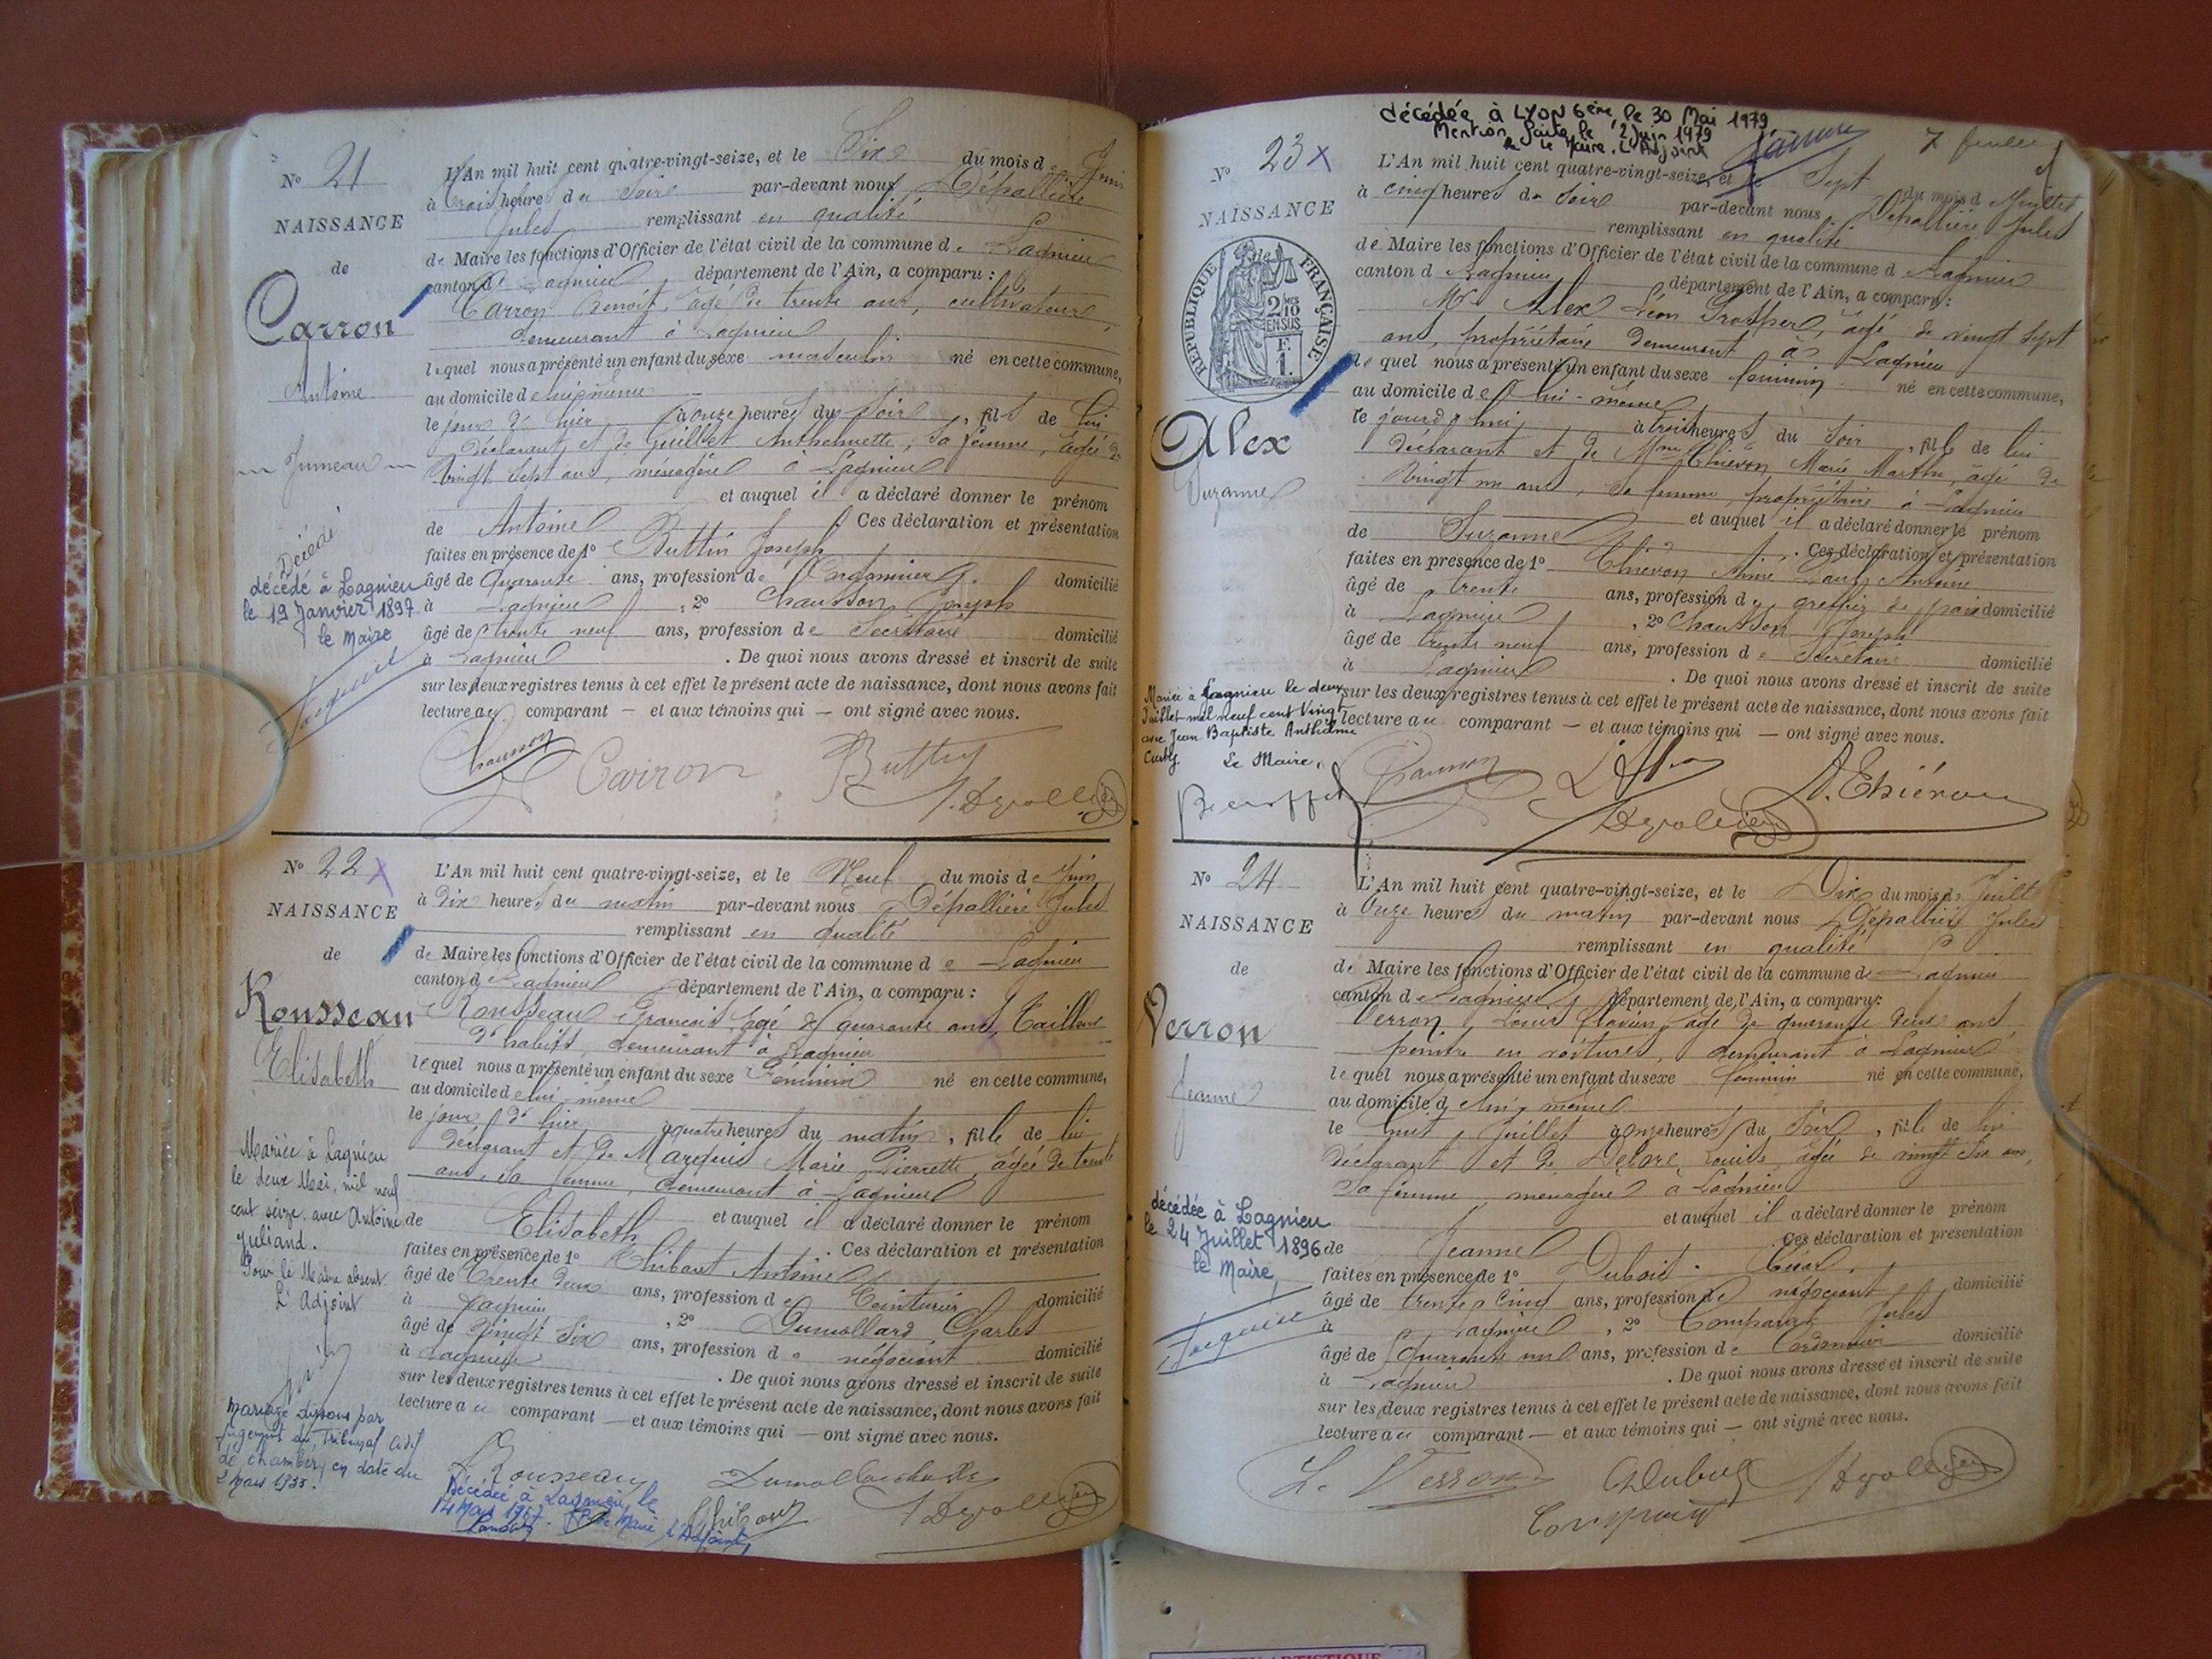 No 21
NAISSANCE
de
Carron
Antoine
Jumeau
Décédé
décédé à Lagnieu
le 19 Janvier 1897
le Maire
L'An mil huit cent quatre-vingt-seize, et le Six du mois de Juin
à trois heures du Soir par-devant nous Dépallière
Jules remplissant en qualité
de Maire les fonctions d'Officier de l'état civil de la commune de Lagnieu
canton de Lagnieu département de l'Ain, a comparu :
Carron Benoit, âgé de trente ans, cultivateur,
demeurant à Lagnieu
lequel nous a présenté un enfant du sexe masculin né en cette commune,
au domicile de lui même
le jour d'hier à onze heures du Soir, fils de lui
déclarant et de Guillet Anthelmette, sa femme, âgée de
vingt sept ans, ménagère à Lagnieu
et auquel il a déclaré donner le prénom
de Antoine. Ces déclaration et présentation
faites en présence de 1° Buttin Joseph
âgé de Quarante ans, profession de Cordonnier domicilié
à Lagnieu, 2° Chausson Joseph
âgé de trente neuf ans, profession de Secrétaire domicilié
à Lagnieu. De quoi nous avons dressé et inscrit de suite
sur les deux registres tenus à cet effet le présent acte de naissance, dont nous avons fait
lecture au comparant — et aux témoins qui — ont signé avec nous.
Carron
No 22 X
NAISSANCE
de
Rousseau
Elisabeth
Mariée à Lagnieu
le deux Mai, mil neuf
cent seize, avec Antoine
Juliand.
Pour le Maire absent
L'Adjoint
Mariage dissous par
jugement du Tribunal Civil
de Chambéry en date du
L'An mil huit cent quatre-vingt-seize, et le Neuf du mois de Juin
à dix heures du matin par-devant nous Dépallière Jules
remplissant en qualité
de Maire les fonctions d'Officier de l'état civil de la commune de Lagnieu
canton de Lagnieu département de l'Ain, a comparu :
Rousseau François, âgé de quarante ans, Tailleur
d'habits, demeurant à Lagnieu
lequel nous a présenté un enfant du sexe Féminin né en cette commune,
au domicile de lui-même
le jour d'hier à quatre heures du matin, fille de lui
déclarant et de Marquis Marie Pierrette, âgée de trente
ans, sa femme, demeurant à Lagnieu
et auquel il a déclaré donner le prénom
de Elisabeth. Ces déclaration et présentation
faites en présence de 1° Thibaut Antoine
âgé de trente deux ans, profession de Teinturier domicilié
à Lagnieu, 2° Dumollard Charles
âgé de vingt six ans, profession de négociant domicilié
à Lagnieu. De quoi nous avons dressé et inscrit de suite
sur les deux registres tenus à cet effet le présent acte de naissance, dont nous avons fait
lecture au comparant — et aux témoins qui — ont signé avec nous.
Rousseau
Décédée à Lagnieu, le
décédée à LYON 6ème le 30 Mai 1979
Mention faite le 2 Juin 1979
No 23 X
NAISSANCE
RÉPUBLIQUE FRANÇAISE
Alex
Suzanne
Mariée à Lagnieu le deux
Juillet mil neuf cent vingt
avec Jean Baptiste Anthelme
Le Maire,
L'An mil huit cent quatre-vingt-seize, et le Sept du mois de Juillet
à cinq heures du Soir par-devant nous Dépallière Jules
remplissant en qualité
de Maire les fonctions d'Officier de l'état civil de la commune de Lagnieu
canton de Lagnieu département de l'Ain, a comparu :
Mr Alex Léon Prosper, âgé de vingt sept
ans, propriétaire demeurant à Lagnieu
lequel nous a présenté un enfant du sexe féminin né en cette commune,
au domicile de lui-même
le jourd'hui à trois heures du Soir, fille de lui
déclarant et de Mme Thiévon Marie Marthe, âgée de
vingt un ans, sa femme, propriétaire à Lagnieu
et auquel il a déclaré donner le prénom
de Suzanne. Ces déclaration et présentation
faites en présence de 1° Thiévon Aimé Antoine
âgé de trente ans, profession de greffier de paix domicilié
à Lagnieu, 2° Chausson Joseph
âgé de trente neuf ans, profession de Secrétaire domicilié
à Lagnieu. De quoi nous avons dressé et inscrit de suite
sur les deux registres tenus à cet effet le présent acte de naissance, dont nous avons fait
lecture au comparant — et aux témoins qui — ont signé avec nous.
No 24
NAISSANCE
de
Verron
Jeanne
décédée à Lagnieu
le 24 Juillet 1896
le Maire,
L'An mil huit cent quatre-vingt-seize, et le Dix du mois de Juillt
à Onze heures du matin par-devant nous Dépallière Jules
remplissant en qualité
de Maire les fonctions d'Officier de l'état civil de la commune de Lagnieu
canton de Lagnieu département de l'Ain, a comparu :
Verron Louis Flavien, âgé de quarante deux ans
peintre en voitures, demeurant à Lagnieu
lequel nous a présenté un enfant du sexe féminin né en cette commune,
au domicile de lui-même
le huit Juillet à onze heures du Soir, fille de lui
déclarant et de Louise âgée de vingt six ans,
sa femme, ménagère à Lagnieu
et auquel il a déclaré donner le prénom
de Jeanne. Ces déclaration et présentation
faites en présence de 1° Dubois
âgé de trente cinq ans, profession de négociant domicilié
à Lagnieu, 2° Comparat Jules
âgé de Quarante un ans, profession de Cordonnier domicilié
à Lagnieu. De quoi nous avons dressé et inscrit de suite
sur les deux registres tenus à cet effet le présent acte de naissance, dont nous avons fait
lecture au comparant — et aux témoins qui — ont signé avec nous.
L. Verron